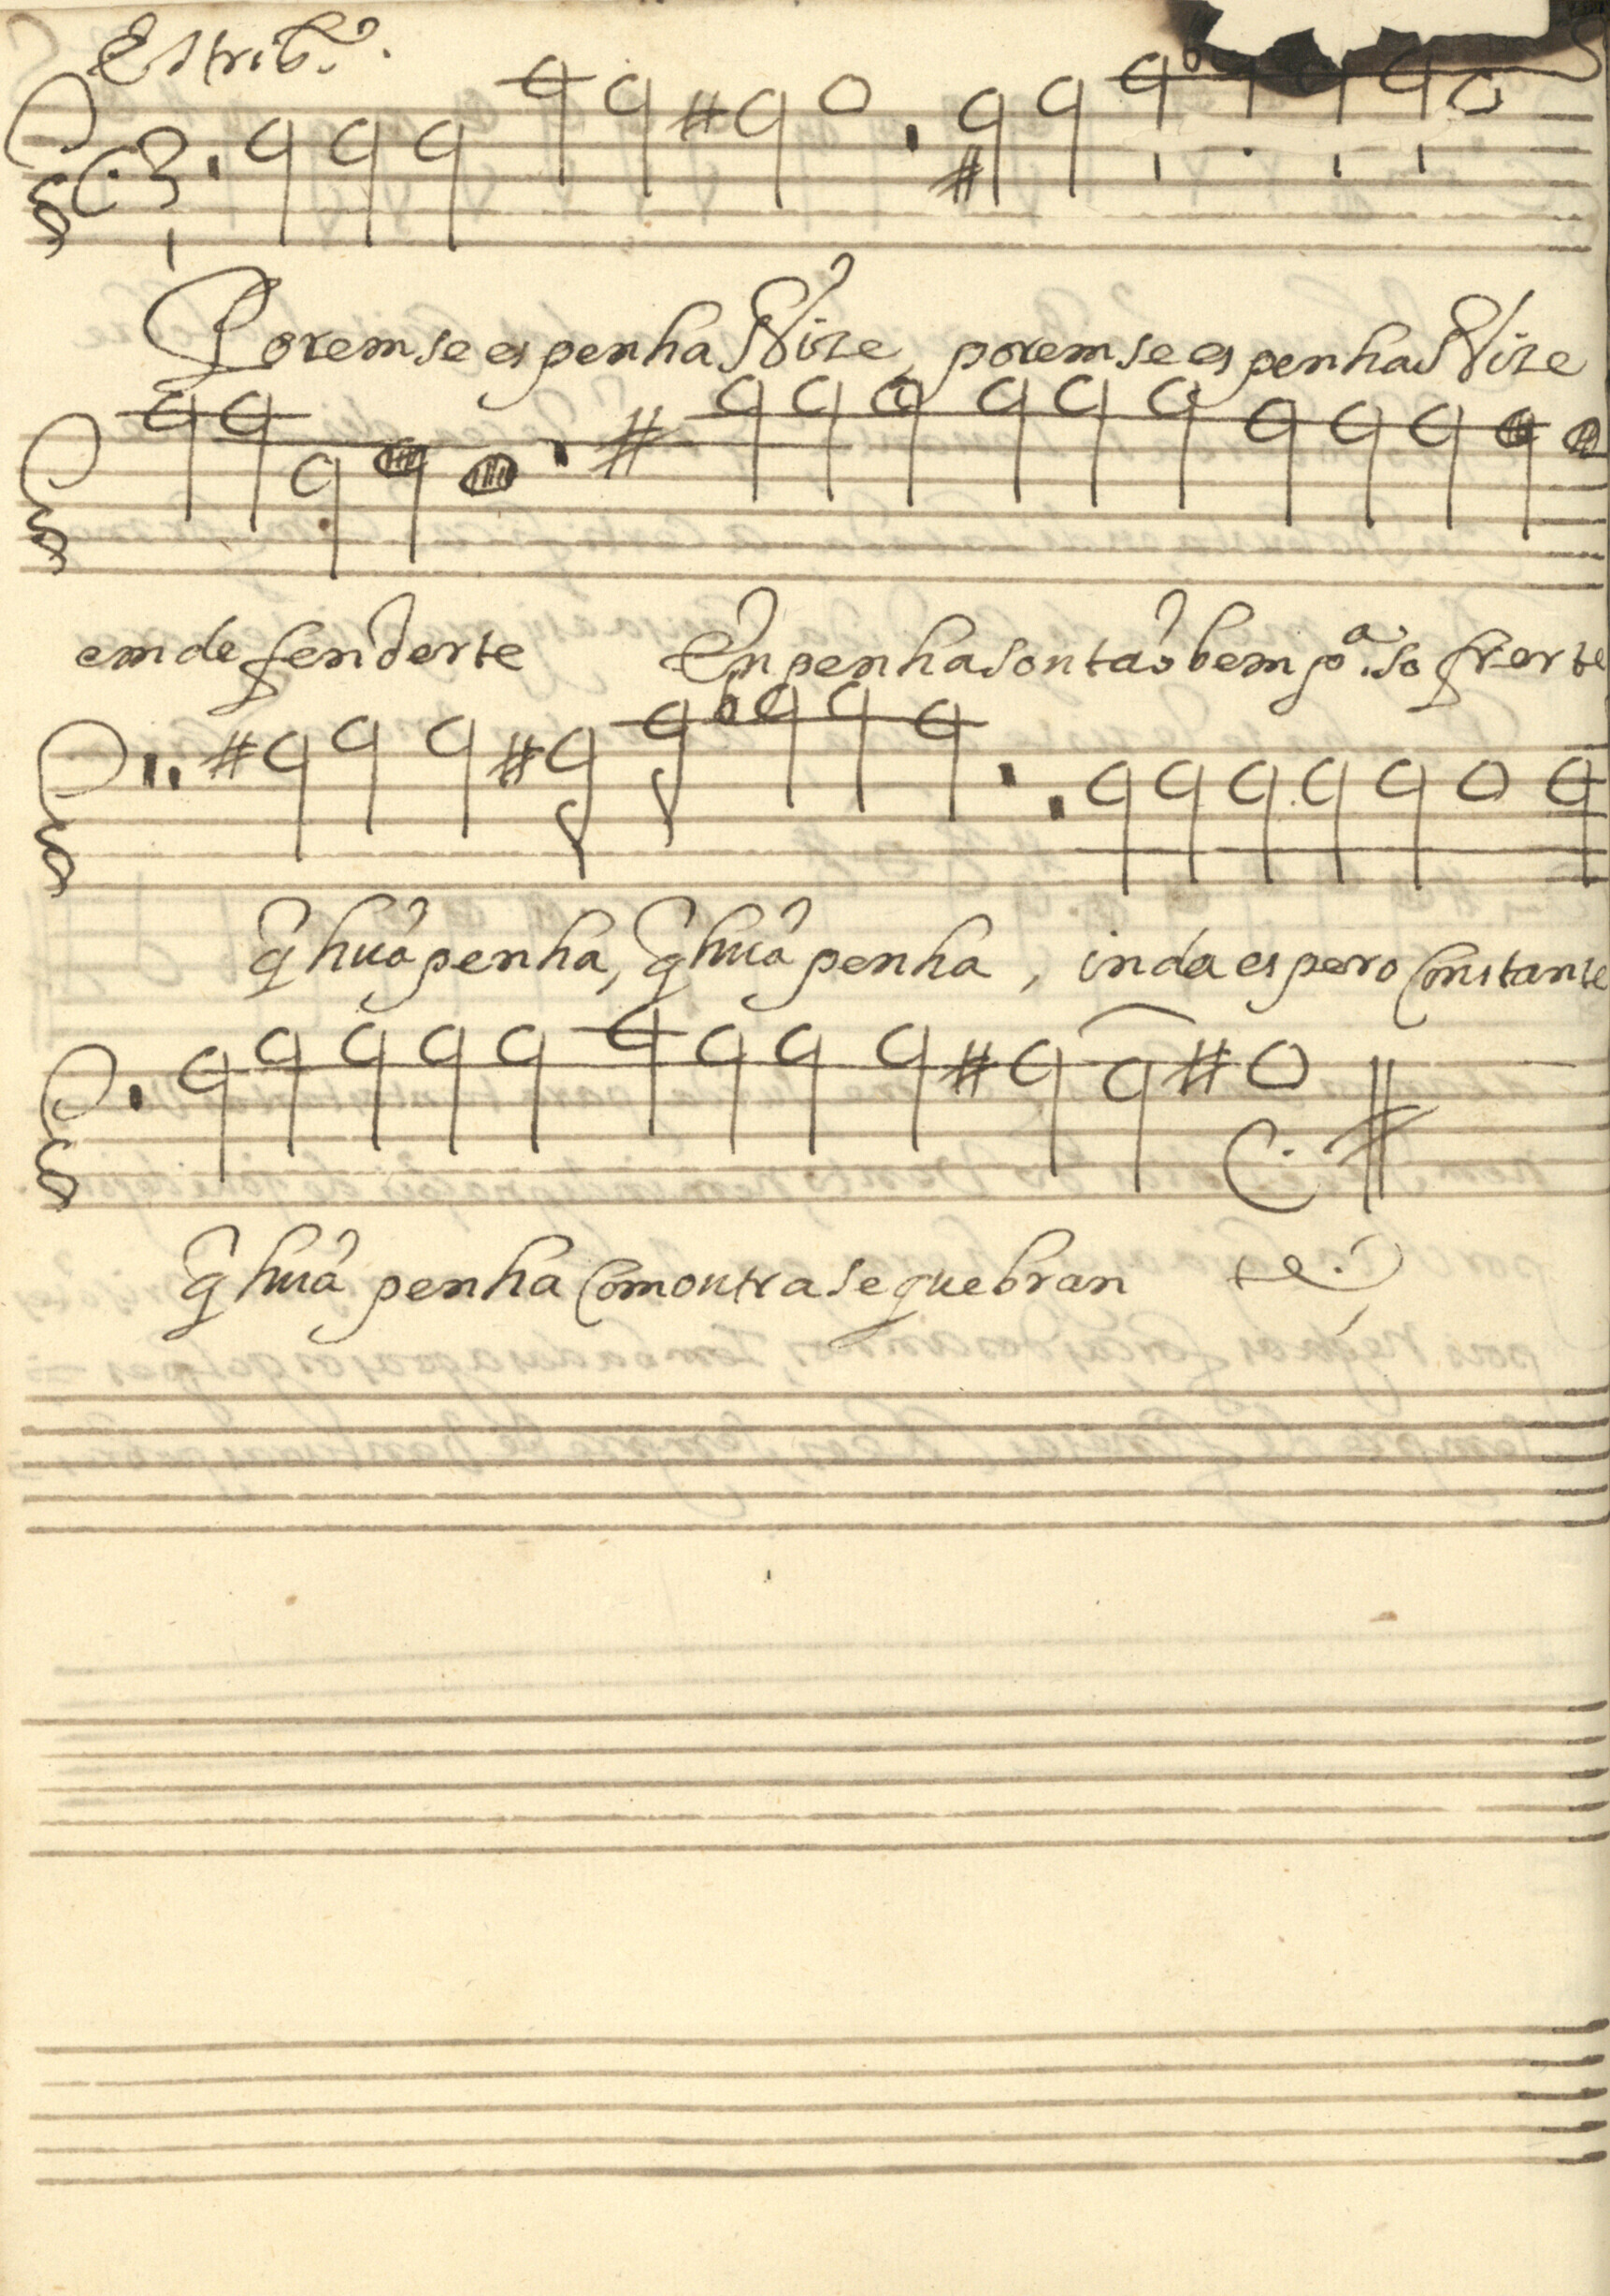 Estrib.º
Porem se es penha Nize, porem se es penha Nize
em defenderte Enpenha sou taõ bem p.ª sofrerte
q̃ huã penha, q̃ huã penha, inda espero Constante
q̃ huã penha Com outra se quebran te.